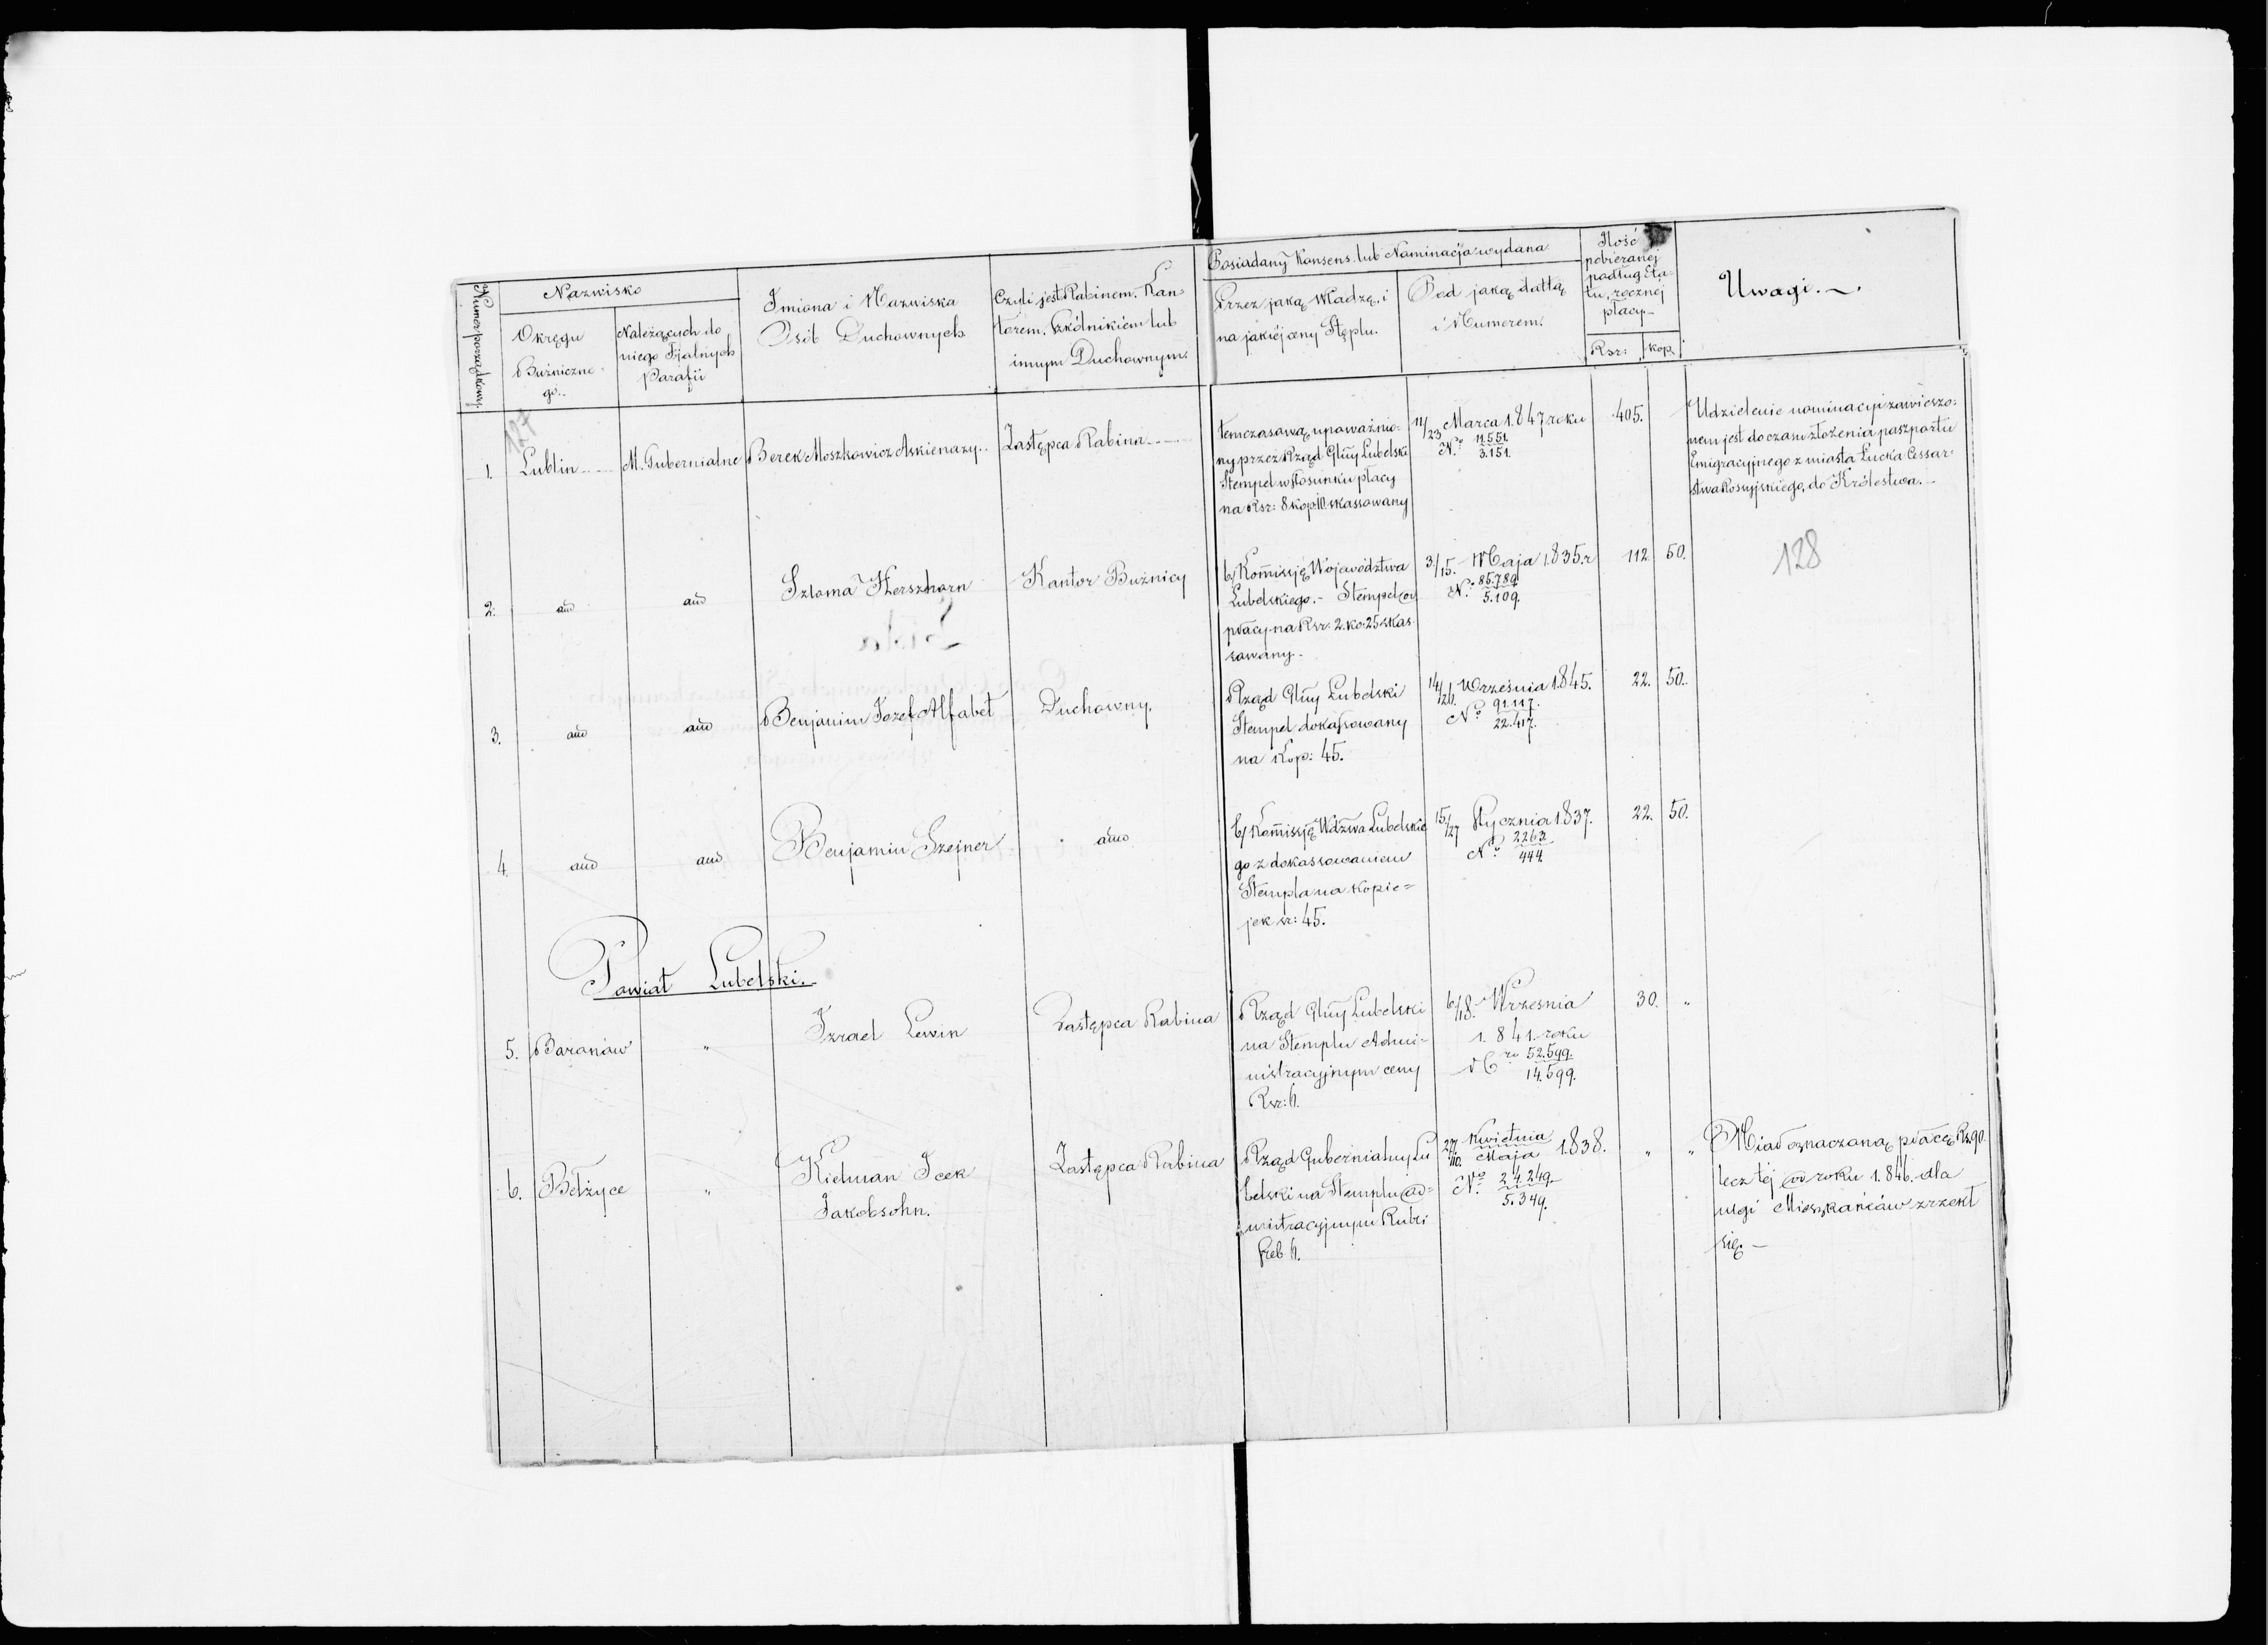 Numer porządkowy.
Nazwisko
Okręgu
Bużniczne-
go..
Należących do
niego Fijalnych
Parafii
Imiona i Nazwiska
Osób Duchownych
Czyli jest Rabinem. Kan-
torem. Szkólnikiem lub
innym Duchownym.
Posiadany Konsens. lub Nominacja wydana
Przez jaką Władzę, i
na jakiéj ceny Stęplu.
Pod jaką dattą
i Numerem.
Ilość
pobieranéj
podług Eta-
tu, rocznéj
płacy
Rsr: kop.
Uwagi.
127
1. Lublin M. Gubernialne Berek Moszkowicz Askienazy.. Zastępca Rabina
temczasową upoważnio-
ny przez Rząd Glny Lubelski
Stempel w stosunku płacy
na Rsr: 8 kop: 10 skassowany
11/23 Marca 1.847 roku
No 11.551.
3.151.
405.
Udzielenie nominacyi zawieszo:
nem jest do czasu złożenia paszportu
Emigracyjnego z miasta Łucka Cessar:
stwa Rossyjskiego, do Królestwa.
128
2. aud aud Szloma Herszhorn Kantor Bużnicy
b/ Kommisję Województwa
Lubelskiego.- Stempel od
płacy na Rsr: 2. ko: 25 skas-
sowany.
3/15. Maja 1.835. r
No. 85.789
5.109.
112. 50.
3. aud aud Benjamin Jozef Alfabet Duchowny.
Rząd Glny Lubelski
Stempel dokassowany
na Kop: 45.
14/26. Września 1.845.
No 91.117.
22.417.
22. 50.
4. aud aud Benjamin Szejner aud
b/ Kommisję Wdztwa Lubelskie
go z dokassowaniem
Stempla na kopie=
jek sr: 45.
15/27 Stycznia 1837.
No. 2263.
444.
22. 50.
Powiat Lubelski.
5. Baranów " Izrael Lewin Zastępca Rabina
Rząd Glny Lubelski
na Stemplu Admi-
nistracyjnym ceny
Rsr: 6.
6/18. Września
1.841. roku
Nro 52.599.
14.599.
30. "
6. Bełżyce " Kielman Icek
Jakobsohn.
Zastępca Rabina
Rząd Gubernialny Lu
belski na Stemplu ad=
ministracyjnym Rubli
sreb. 6.
27/10. Kwietnia
Maja 1.838.
No. 24.249.
5.349.
" "
Miał oznaczoną płacę Rs 90.
lecz téj od roku 1.846. dla
ulgi Mieszkańców zrzekł
się.